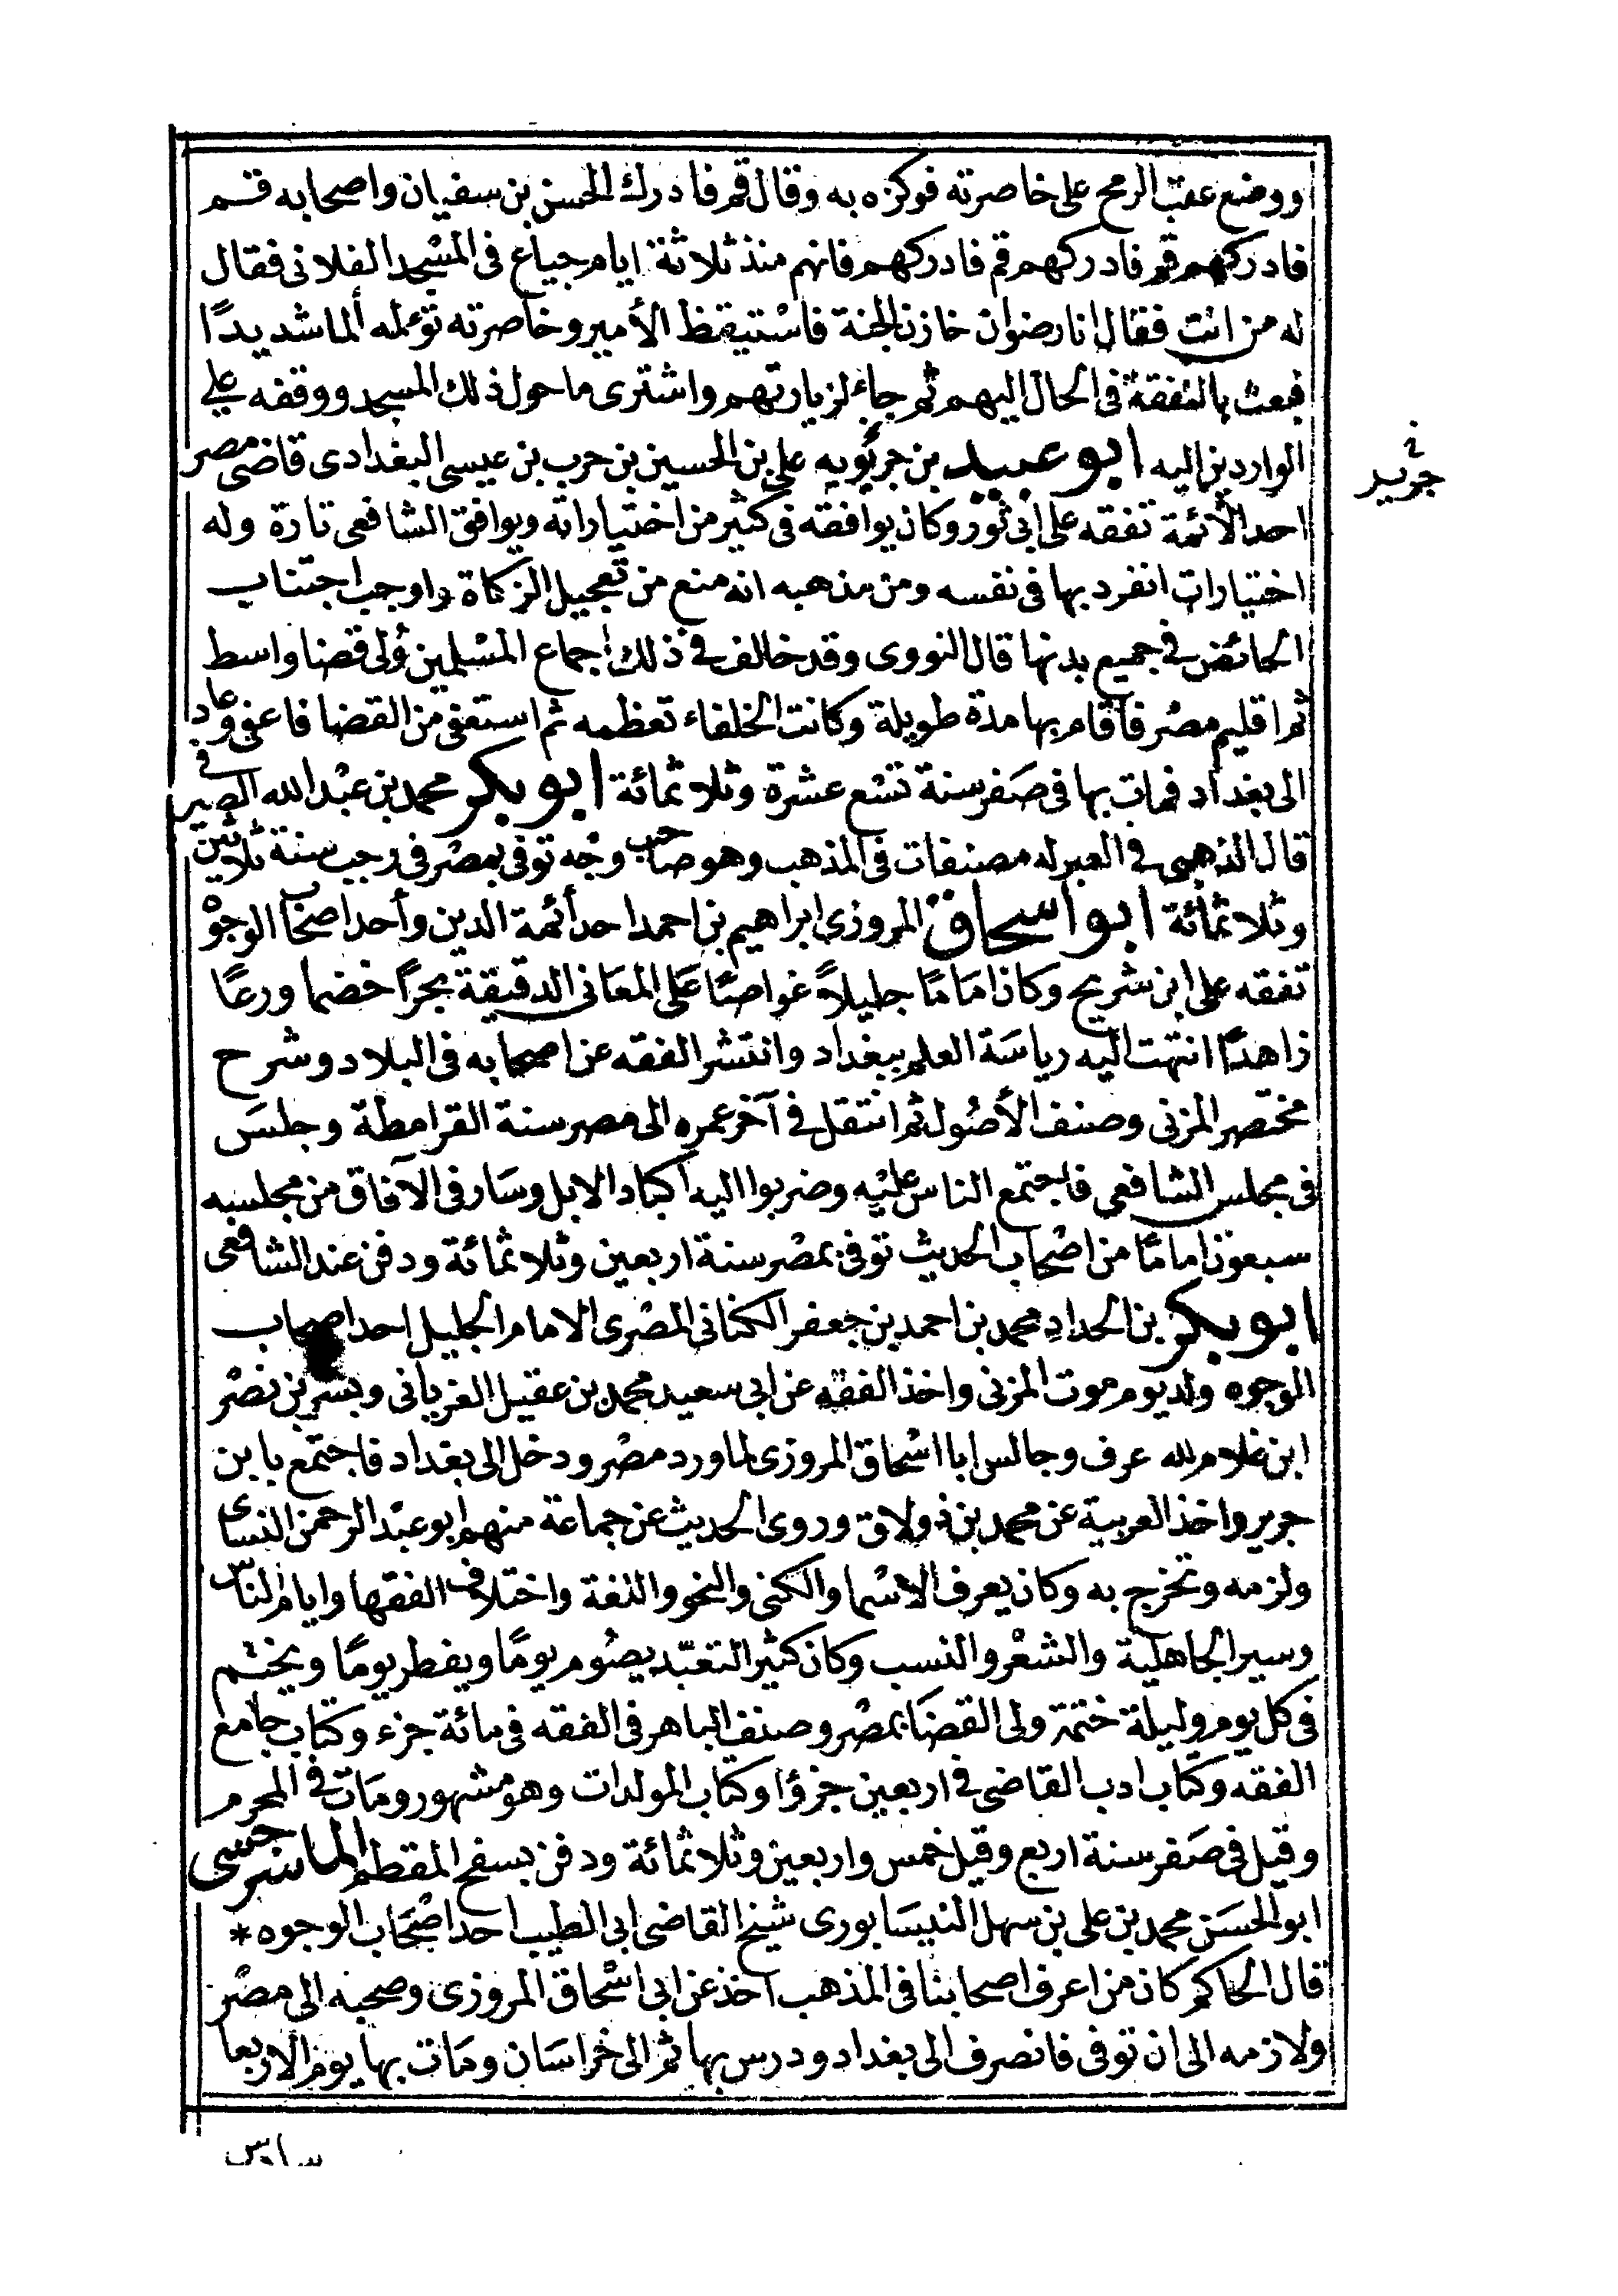 ووضع عقب الرمح على خاصرته فوكزه به وقال قم فادرك الحسن بن سفيان واصحابه قم
فادركهم قم فادركهم قم فادركهم فانهم منذ ثلاثة ايام جياع فى المسْجد الفلانى فقال
له من انت فقال انا رضوان خازن الجنة فاسْتيقظ الأمير وخاصرته تؤلمه ألما شديدًا
فبعث بالنفقة فى الحال اليهم ثم جاء لزيارتهم واشترى ما حول ذلك المسجد ووقفه على
الواردين اليه ابو عبيد بن جرثويه على بن الحسين بن حرب بن عيسى البغدادى قاضى مصر
احد الأئمة تفقه على ابى ثور وكان يوافقه فى كثير من اختياراته ويوافق الشافعى تارة وله
اختيارات انفرد بها فى نفسه ومن مذهبه انه منع من تعجيل الزكاة واوجب اجتناب
الحائض فى جميع بدنها قال النووى وقد خالف فى ذلك اجماع المسْلمين وُلى قضا واسط
ثم اقليم مصْر فأقام بها مدة طويلة وكانت الخلفاء تعظمه ثم استعفى من القضا فاعفى وعاد
الى بغداد فمات بها فى صَفر سنة تسْع عشرة وثلاثمائة ابو بكر محمد بن عبْد الله الصيرفى
قال الذهبى فى العبر له مصنفات فى المذهب وهو صاحب وجْه توفى بمصْر فى رجب سنة ثلاثين
وثلاثمائة ابو اسحاق المروزى ابراهيم بن احمد احد أئمة الدين وأحد اصحاب الوجوْه
تفقه على ابن شريح وكان امَامًا جليلاً غواصًا عَلى المعَانى الدقيقة بحرًا خضما ورعًا
زاهدًا انتهت اليه رياسَة العلم ببغداد وانتشر الفقه عن اصحابه فى البلاد وشرح
مختصر المزنى وصنف الأصُول ثم انتقل فى آخر عمره الى مصر سنة القرامطة وجلسَ
فى مجلس الشافعى فاجتمع الناس عليْه وضربوا اليه اكباد الابل وسَار فى الآفاق من مجلسه
سبعون امامًا من اصْحاب الحديث توفى بمصْر سنة اربعين وثلاثمائة ودفن عند الشافعى
ابو بكر بن الحداد محمد بن احمد بن جعفر الكنانى المصْرى الامام الجليل احد اصحاب
الوجوه ولد يوم موت المزنى واخذ الفقه عن ابى سعيد محمد بن عقيل الفريانى وبشر بن نصْر
ابن غلام لله عرف وجالس ابا اسْحاق المروزى لما ورد مصْر ودخل الى بغداد فاجتمع بابن
جرير واخذ العربية عن محمد بن ولاق وروى الحديث عن جماعة منهم ابو عبْد الرحمن النساى
ولزمه وتخرج به وكان يعرف الاسْما والكنى والنحو واللغة واختلاف الفقها وايام الناس
وسير الجاهلية والشعْر والنسب وكان كثير التعبّد يصُوم يومًا ويفطر يومًا ويختم
فى كل يوم وليلة ختمة ولى القضَا بمصْر وصنف الباهر فى الفقه فى مائة جزء وكتاب جامع
الفقه وكتاب ادب القاضى فى اربعين جزؤا وكتاب المولدات وهو مشهور ومَات فى المحرم
وقيل فى صَفر سنة اربع وقيل خمس واربعين وثلاثمائة ودفن بسفح المقطم الماسرجسى
ابو الحسَن محمد بن على بن سهل النيسَابورى شيخ القاضى ابى الطيب احد اصْحَاب الوجوه *
قال الحاكم كان من اعرف اصحابنا فى المذهب اخذ عن ابى اسْحاق المروزى وصحبه الى مصْر
ولازمه الى ان توفى فانصرف الى بغداد ودرس بها ثم الى خراسَان ومَات بها يوم الاربعا
سادس